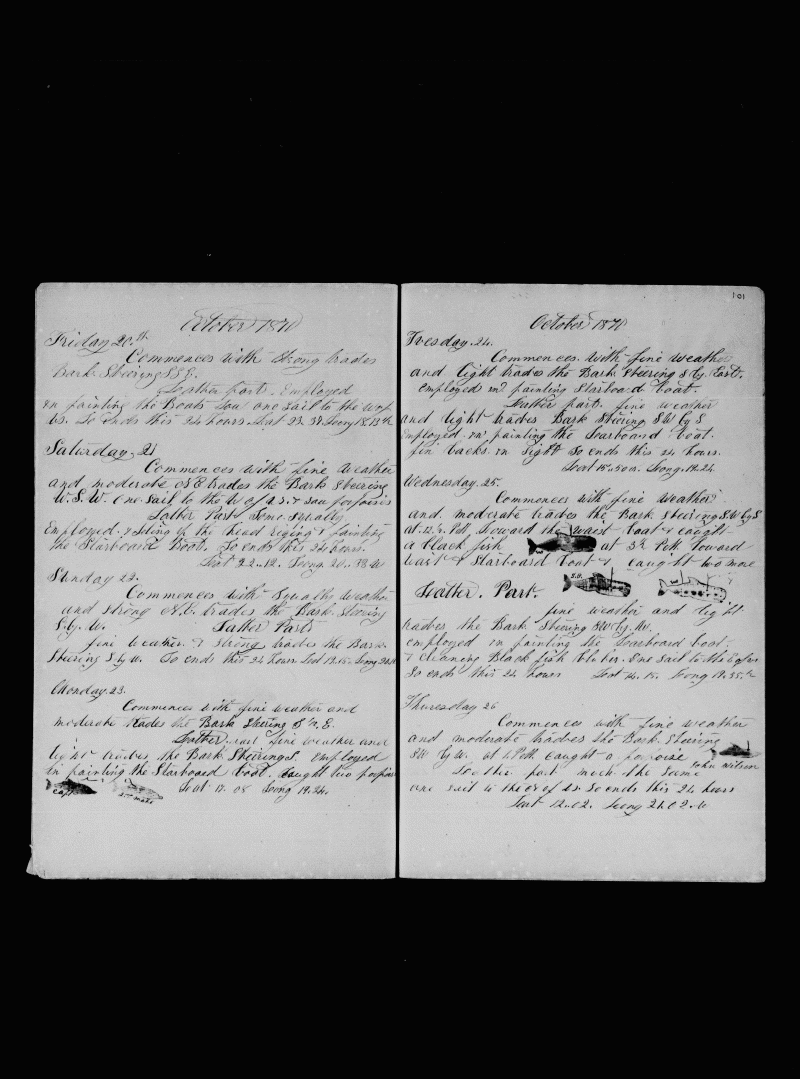 October 1871
Friday 20th
Commences with strong trades
Bark Steering S.S.E.
Latter part. Employed
in painting the Boats Saw one sail to the
us. So ends this 24 hours. Lat 23.37. Long 18.13
Saturday. 21
Commences with fine weather
and moderate N.E. trades the Bark Steering
W.S.W. one sail to the W of us. & saw porpoises
Latter Part. Some Squally
Employed. & the head & painting
the Starboard Boat. So ends this 24 hours.
Lat 22.12. Long 20.38 W
Sunday 22.
Commences with Squally weather
and strong N.E. trades the Bark. Steering
S. by. W. Latter Parts
fine weather. & strong trades the Bark.
Steering S by W. So ends this 24 hours Lat 19.15. Long
Monday. 23.
Commences with fine weather and
moderate trades the Bark Steering S
Latter part fine weather and
light trades, the Bark Steering S. Employed
in painting the Starboard boat. Caught two porpoises
Lat 17.08 Long 19.24.
Capt. 2nd mate
101
October 1871
Tuesday. 24.
Commences. with fine weather
and light trades the Bark Steering S by. East.
employed in painting Starboard boat.
Latter part. fine weather
and light trades Bark Steering SW by S
Employed in painting the Larboard boat.
fin backs in sight So ends this 24 hours.
Lat 15.50. Long. 19.24
Wednesday. 25.
Commences with fine weather
and moderate trades the Bark Steering S.W by S
at 12. P.M. lowered the waist boat & caught
a black fish at 3 P.M. lowered
waist & Starboard boat & caught two more
S.B.
Latter. Part.
fine weather and light
trades the Bark Steering SW by. W.
employed in painting the Larboard boat.
& cleaning Black fish blubber. One Sail to the of us
So ends this 24 hours Lat 14.15. Long 19.35.
Thursday 26
Commences with fine weather
and moderate trades the Bark Steering
SW by W. at 6 P.M. caught a porpoise
John Wilson
Latter part much the same
one sail to the of us. So ends this 24 hours
Lat 12.02. Long 21.02. W